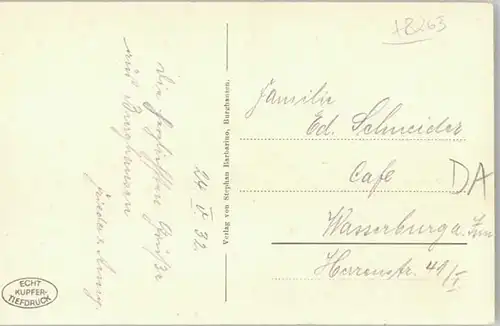 Die herzlichsten Grüße
aus Burghausen
24. V. 32.
Verlag von Stephan Barbarino, Burghausen.
Familie
Ed. Schneider
Cafe
Wasserburg a. Inn
Herrenstr. 41/I
DA
ECHT
KUPFER-
TIEFDRUCK